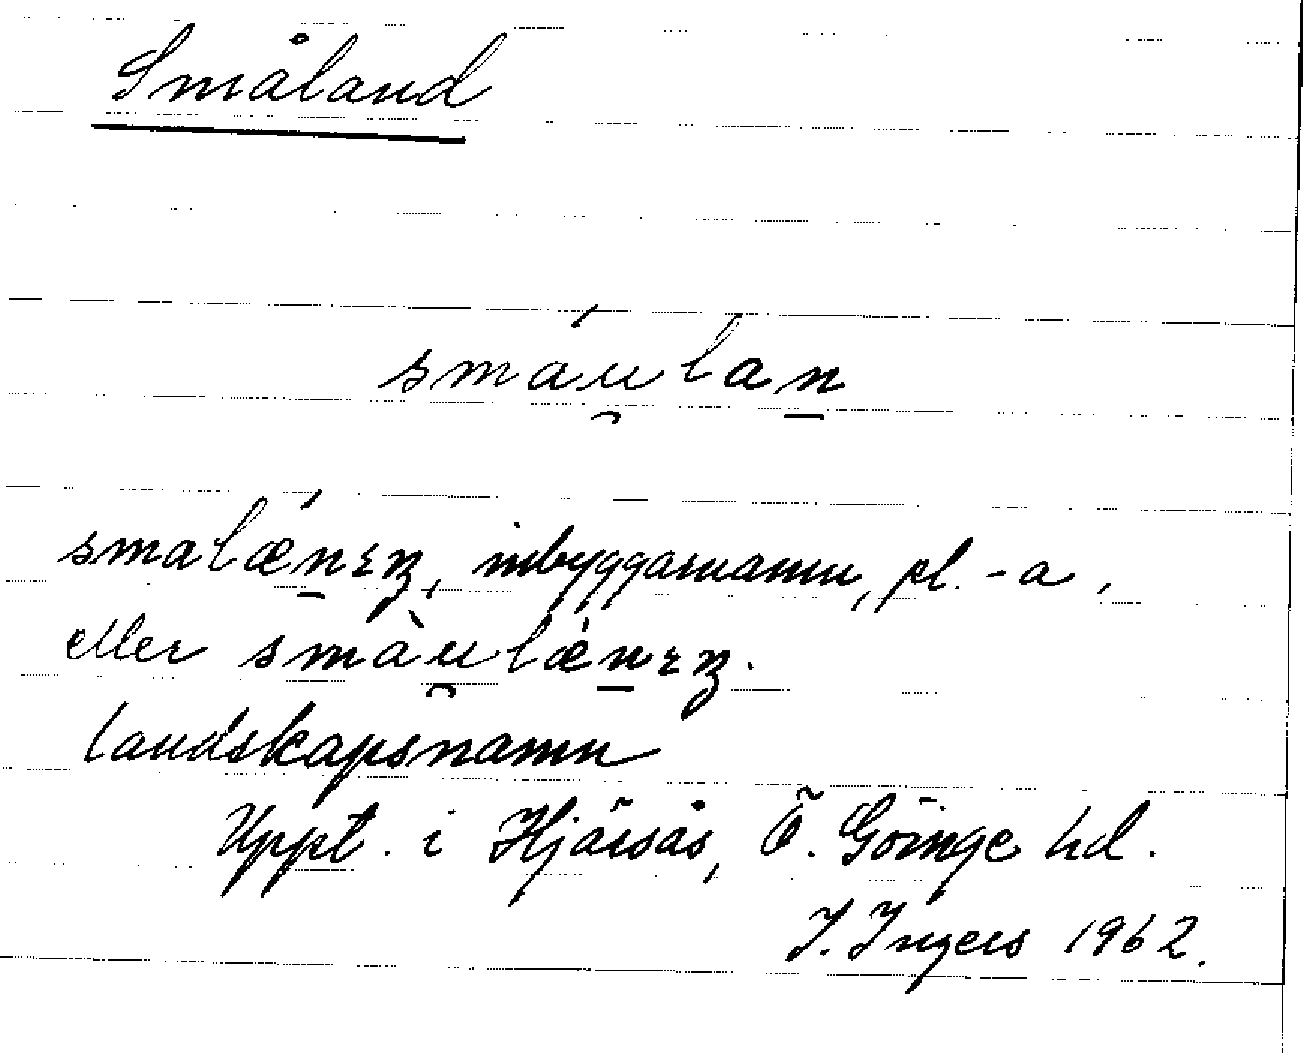 Småland
smáu̯lan̲
smalǽn̲ɛʒ, inbyggarnamn, pl. -a,
eller smàu̯læ̀n̲ɛʒ.
landskapsnamn
Uppt. i Hjärsås, Ö. Göinge hd.
I. Ingers 1962.